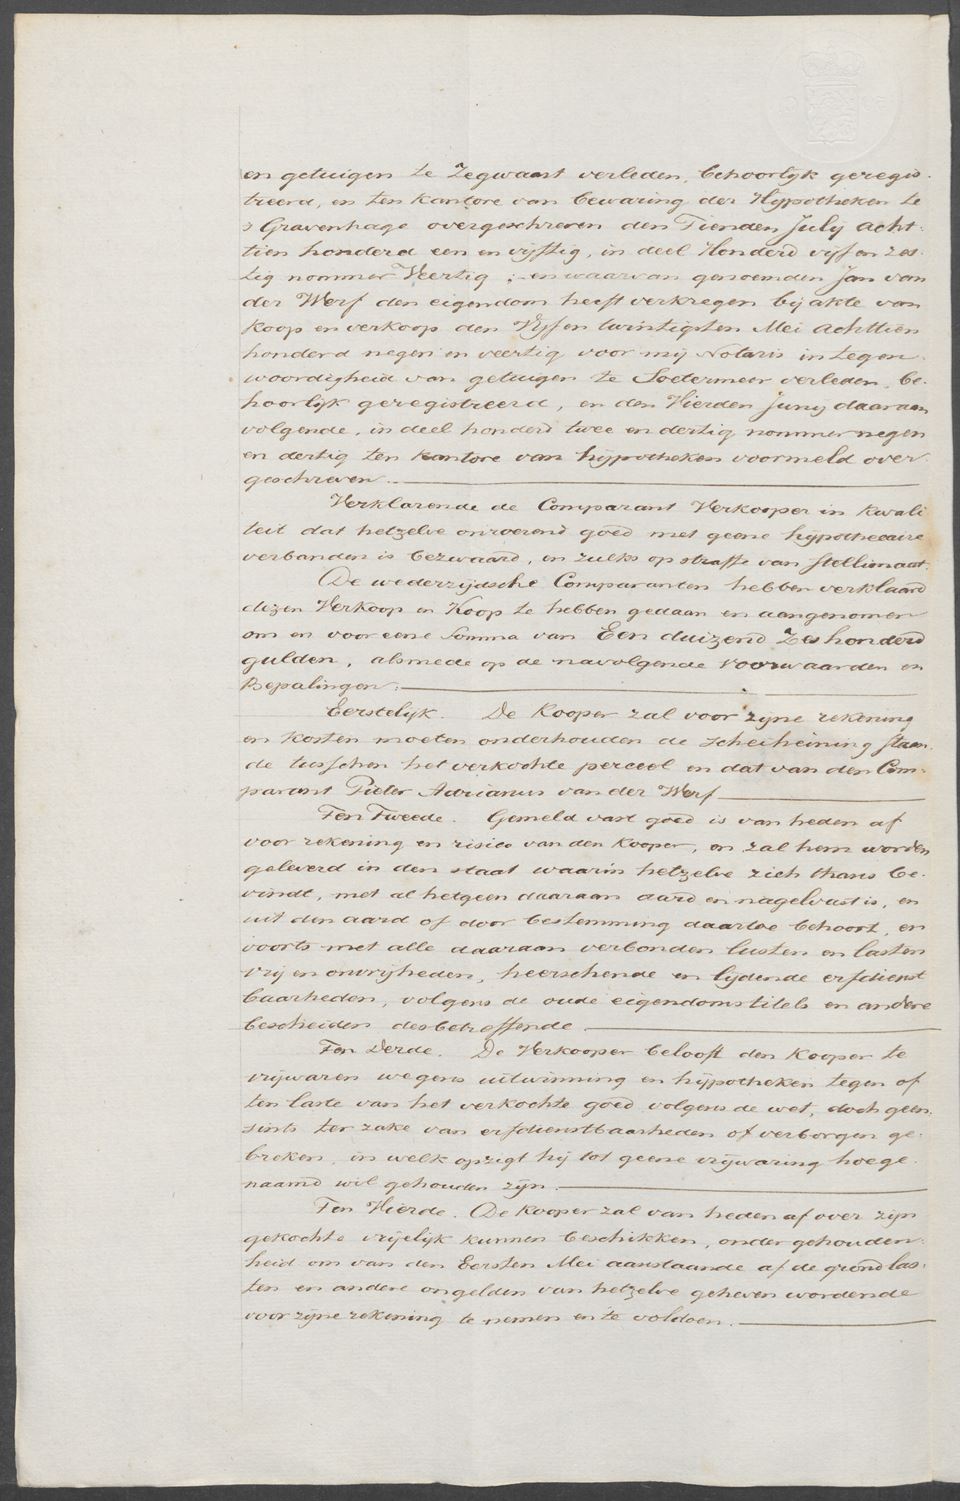 en getuigen te Zegwaart verleden, behoorlijk geregis-
treerd, en ten kantore van bewaring der Hypotheken te
s Gravenhage overgeschreven den Tienden Julij acht-
tien honderd een en vijftig, in deel Honderd vijf en zes-
tig nommer Veertig; en waarvan genoemden Jan van
der Werf den eigendom heeft verkregen bij akte van
Koop en verkoop den Vijf en twintigsten Mei achttien
honderd negen en veertig voor mij Notaris in tegen-
woordigheid van getuigen te Soetermeer verleden, be-
hoorlijk geregistreerd, en den Vierden Junij daaraan
volgende, in deel honderd twee en dertig nommer negen
en dertig ten kantore van hijpotheken voormeld over-
geschreven.
Verklarende de Comparant Verkooper in kwali
teit dat hetzelve onroerend goed met geene hijpothecaire
verbanden is bezwaard, en zulks op straffe van stellionaat.
De wederzijdsche Comparanten hebben verklaard
dezen Verkoop en Koop te hebben gedaan en aangenomen
om en voor eene somma van Een duizend Zes honderd
gulden, alsmede op de navolgende voorwaarden en
Bepalingen:
Eerstelijk. De Kooper zal voor zijne rekening
en kosten moeten onderhouden de scheiheining staan-
de tusschen het verkochte perceel en dat van den Com-
parant Pieter Adrianus van der Werf
Ten Tweede. Gemeld vast goed is van heden af
voor rekening en risico van den Kooper, en zal hem worden
geleverd in den staat waarin hetzelve zich thans be-
vindt, met al hetgeen daaraan aard en nagelvast is, en
uit den aard of door bestemming daartoe behoort, en
voorts met alle daaraan verbonden lusten en lasten
vrij en onvrijheden, heerschende en lijdende erfdienst
baarheden, volgens de oude eigendomstitels en andere
bescheiden desbetreffende
Ten Derde. De Verkooper belooft den Kooper te
vrijwaren wegens uitwinning en hijpotheken tegen of
ten laste van het verkochte goed volgens de wet, doch geen-
sints ter zake van erfdienstbaarheden of verborgen ge-
breken, in welk opzigt hij tot geene vrijwaring hoege-
naamd wil gehouden zijn.
Ten Vierde. De Kooper zal van heden af over zijn
gekochte vrijelijk kunnen beschikken, onder gehouden-
heid om van den Eersten Mei aanstaande af de grondlas-
ten en andere ongelden van hetzelve geheven wordende
voor zijne rekening te nemen en te voldoen.